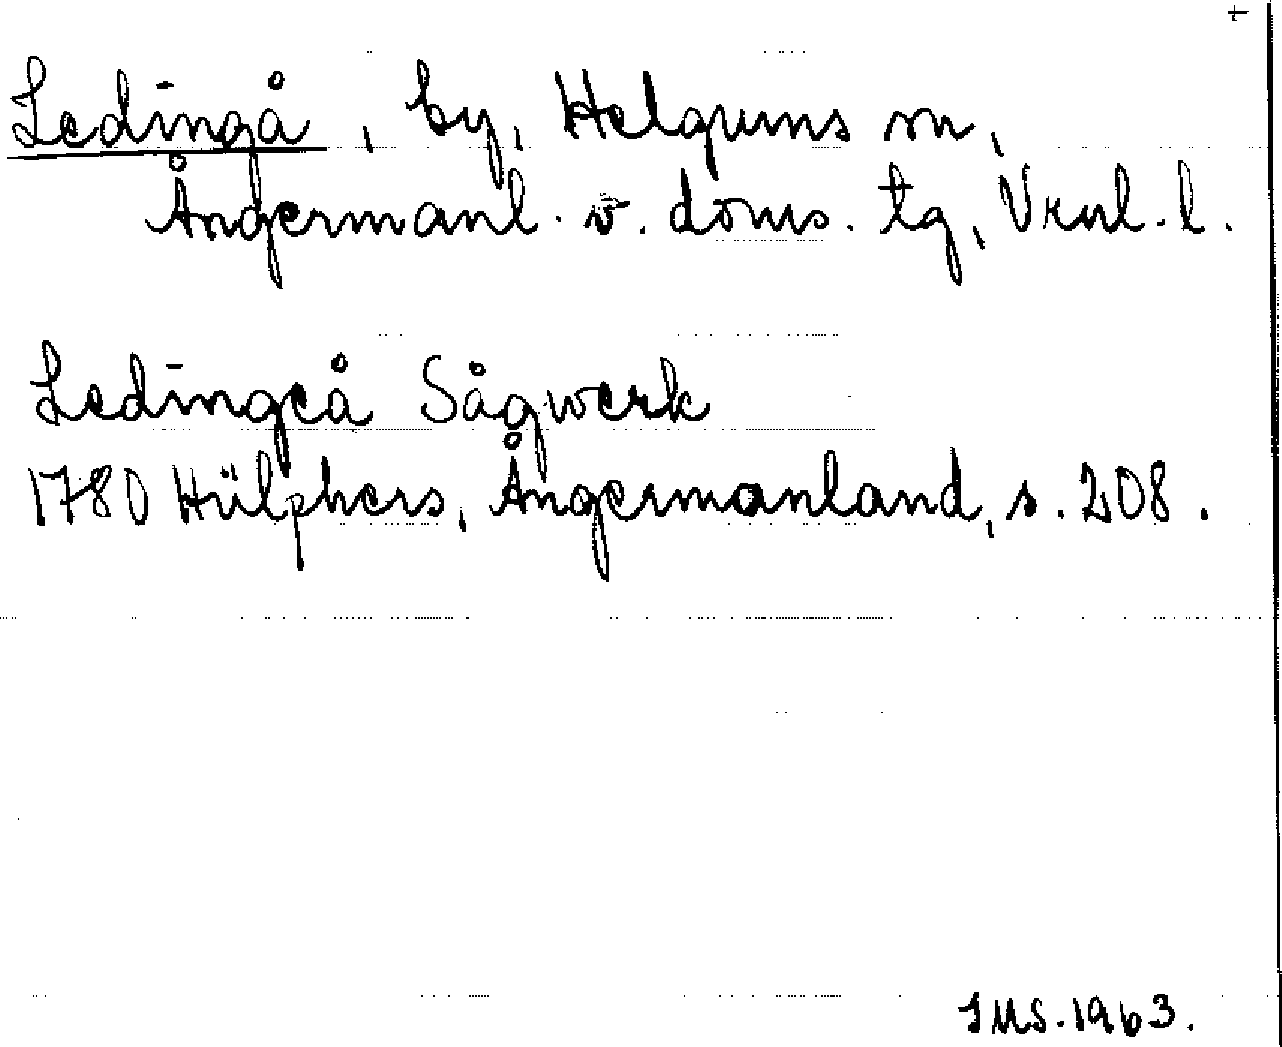 Ledingå, by, Helgums sn,
Ångermanl. v. doms. tg, Vrnl. l.
Ledingeå Sågwerk
1780 Hülphers, Ångermanland, s. 208.
IMS. 1963.